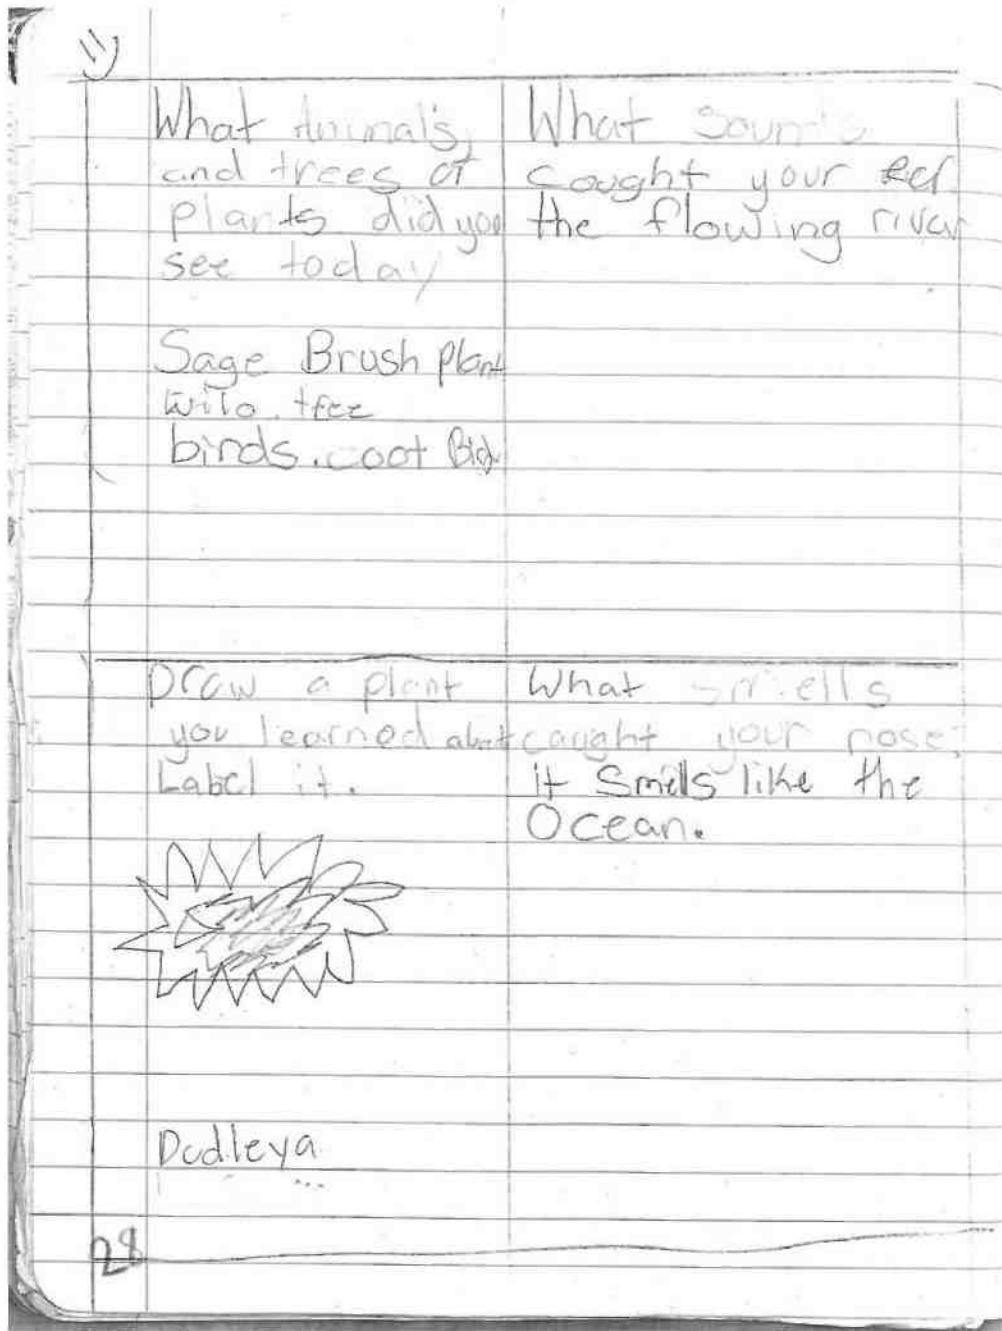 What Animals,
and trees or
plants did you
see today
Sage Brush plant
wilo. tree
birds. coot Bid.
What Sounds
cought your eer.
the flowing river
Draw a plant
you learned about
Label it.
Dudleya
What smells
caught your nose,
it Smells like the
Ocean.
28